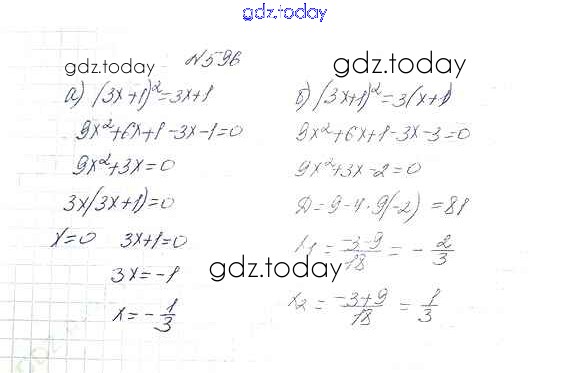 gdz.today
№596
gdz.today
gdz.today
а) (3x+1)²=3x+1
9x²+6x+1-3x-1=0
9x²+3x=0
3x(3x+1)=0
x=0 3x+1=0
3x=-1
x=-1/3
б) (3x+1)²=3(x+1)
9x²+6x+1-3x-3=0
9x²+3x-2=0
Д=9-4·9(-2)=81
x₁=(-3-9)/18=-2/3
x₂=(-3+9)/18=1/3
gdz.today